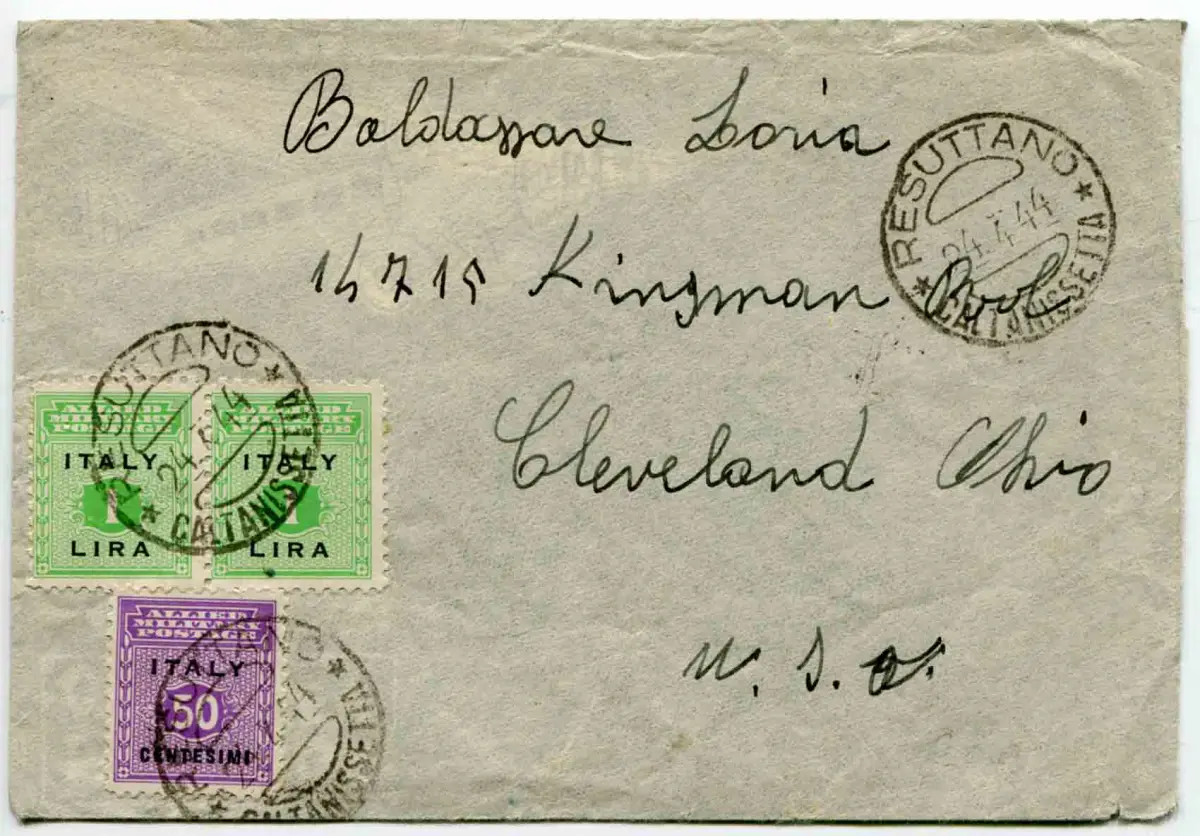 Baldassare Loria
RESUTTANO
24.4.44
CALTANISSETTA
14715 Kingman Bvl
Cleveland Ohio
U. S. a.
RESUTTANO
24.4.44
CALTANISSETTA
ALLIED MILITARY POSTAGE
ITALY
1
LIRA
ALLIED MILITARY POSTAGE
ITALY
1
LIRA
ALLIED
MILITARY
POSTAGE
ITALY
50
CENTESIMI
CALTANISSETTA